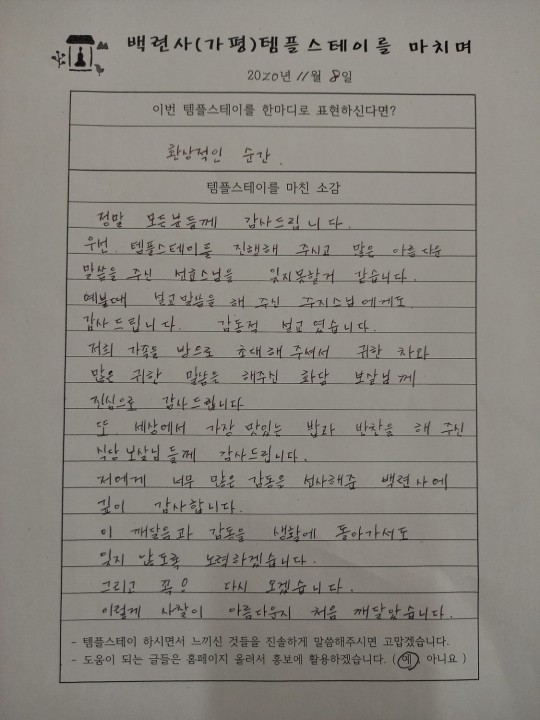 백련사(가평)템플스테이를 마치며
2020년 11월 8일
이번 템플스테이를 한마디로 표현하신다면?
환상적인 순간.
템플스테이를 마친 소감
정말 모든분들께 감사드립니다.
우선. 템플스테이를 진행해 주시고 많은 아름다운
말씀을 주신 선효스님을 잊지못할거 같습니다.
예불때 설교말씀을 해 주신 주지스님에게도.
감사드립니다. 감동적 설교였습니다.
저희 가족을 방으로 초대해 주셔서 귀한 차와
많은 귀한 말씀을 해주신 화담 보살님께
진심으로 감사드립니다
또 세상에서 가장 맛있는 밥과 반찬을 해 주신
식당보살님들께 감사드립니다.
저에게 너무 많은 감동을 선사해준 백련사에
깊이 감사합니다.
이 깨달음과 감동을 생활에 돌아가서도
잊지 않도록 노력하겠습니다.
그리고 꼭! 다시 오겠습니다.
이렇게 사찰이 아름다운지 처음 깨달았습니다.
- 템플스테이 하시면서 느끼신 것들을 진솔하게 말씀해주시면 고맙겠습니다.
- 도움이 되는 글들은 홈페이지 올려서 홍보에 활용하겠습니다. ( 예 . 아니요 )